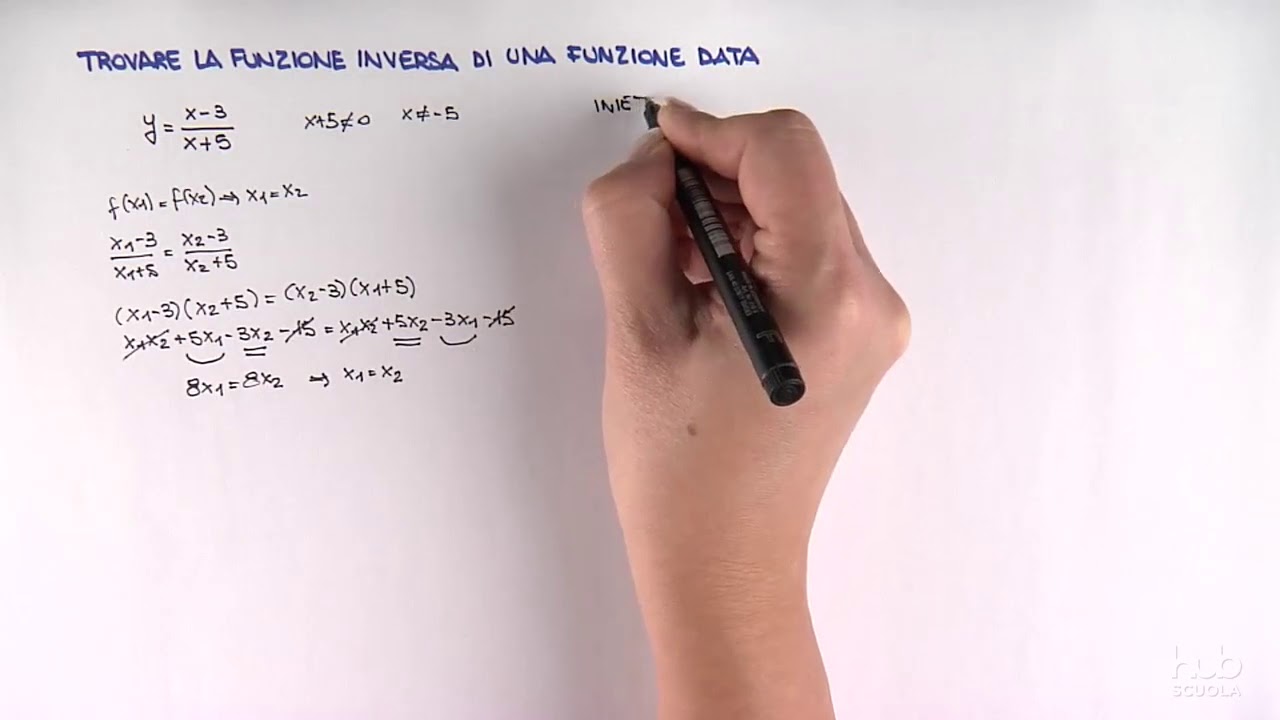 TROVARE LA FUNZIONE INVERSA DI UNA FUNZIONE DATA
y = x-3 / x+5    x+5≠0    x≠-5
INIET
f(x1) = f(x2) ⇒ x1 = x2
x1-3 / x1+5 = x2-3 / x2+5
(x1-3)(x2+5) = (x2-3)(x1+5)
x1x2 + 5x1 - 3x2 - 15 = x1x2 + 5x2 - 3x1 - 15
8x1 = 8x2 ⇒ x1 = x2
hub
SCUOLA